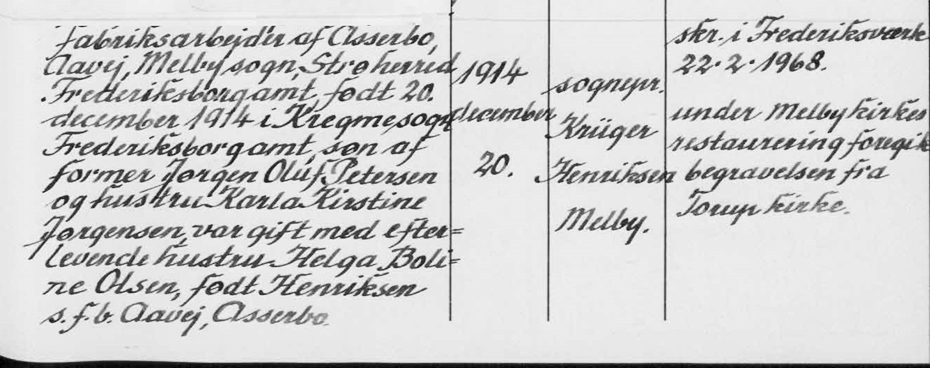 fabriksarbejder af Asserbo,
Aavej, Melby sogn, Strø herred
Frederiksborg amt, født 20.
december 1914 i Kregme sogn
Frederiksborg amt, søn af
former Jørgen Oluf Petersen
og hustru Karla Kirstine
Jørgensen, var gift med efter=
levende hustru Helga Boli=
ne Olsen, født Henriksen
s. f. b. Aavej, Asserbo.
1914
december
20.
sognepr.
Krüger
Henriksen
Melby.
skr. i Frederiksværk
22. 2. 1968.
under Melby kirkes
restaurering foregik
begravelsen fra
Torup kirke.